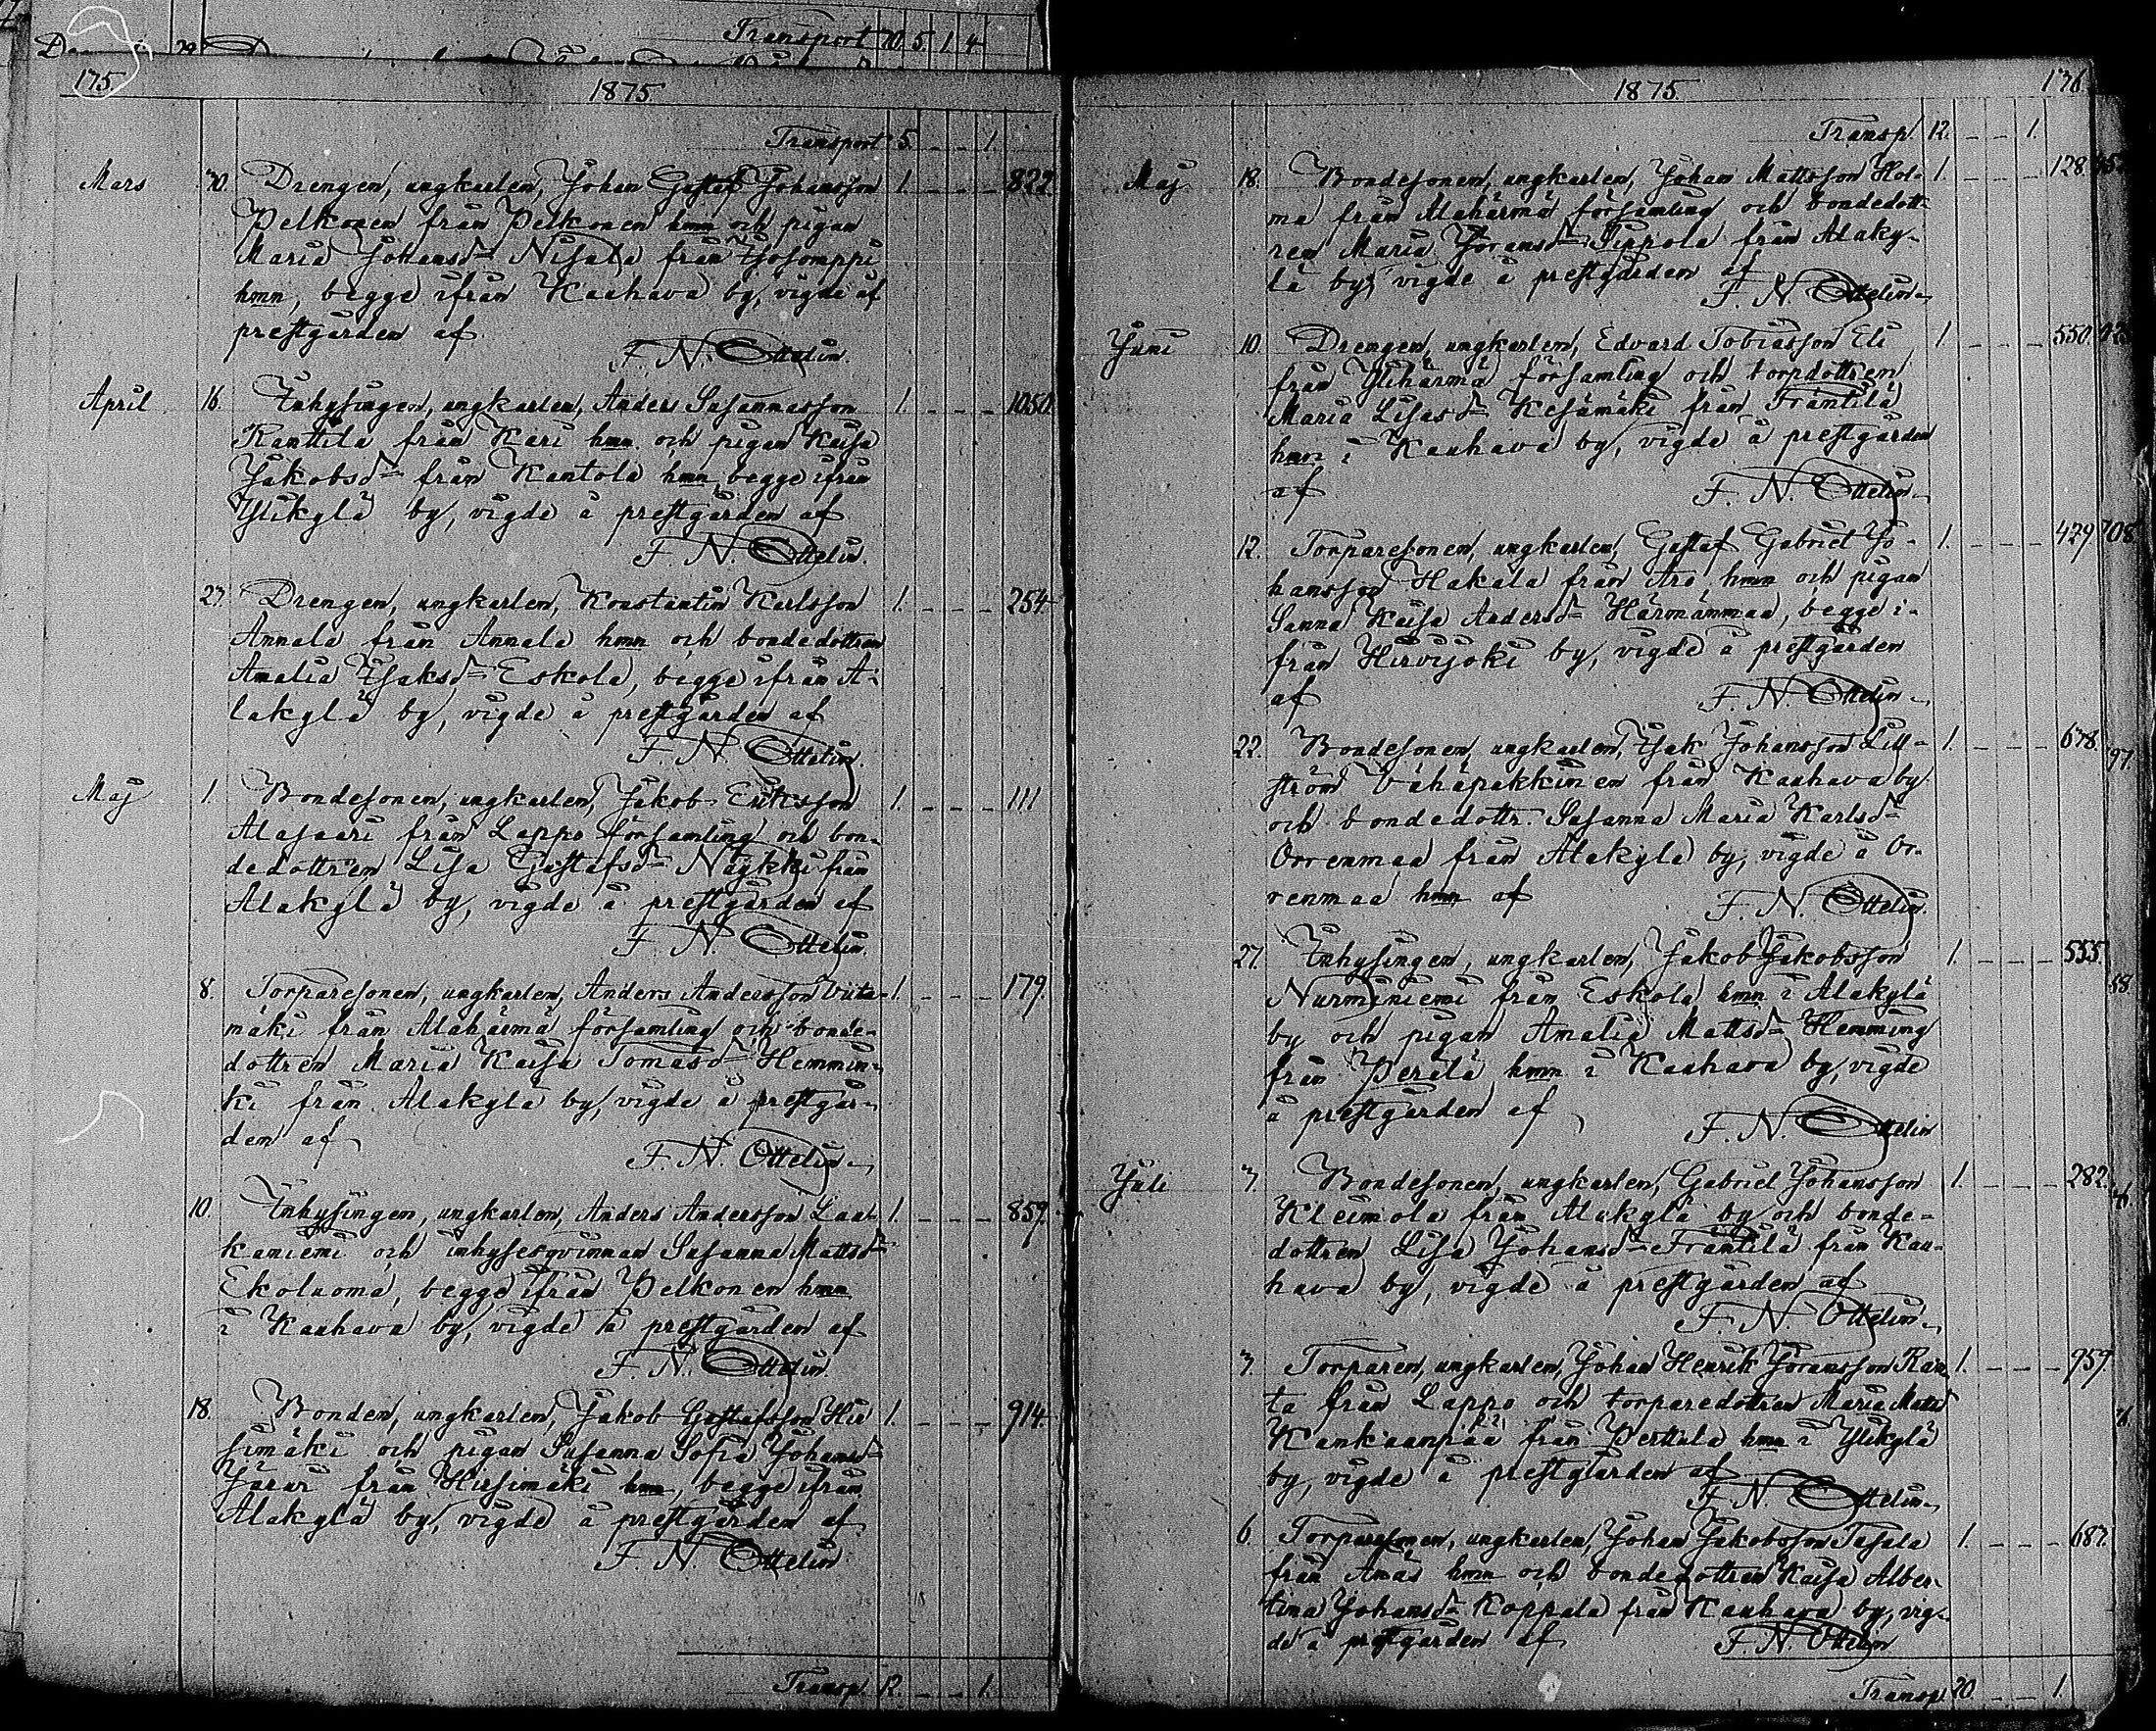 Transport 70. 5. 1. 4.
175.
1875
Transport 5. - - 1.
Mars 30. Drengen, ungkarlen, Johan Gustaf Johansson 1. - - - 822
Pelkonen från Pelkonen hmn och pigan
Maria Johansdr Nisula från Josomppi
hmn, begge ifrån Kauhava by, vigde af
prestgården af
F. N. Ottelin.
April 16. Inhysingen, ungkarlen, Anders Susannasson 1. - - - 1050.
Ranttila från Kari hmn och pigan Kaisa
Jakobsdr från Kantola hmn, begge ifrån
Ylikylä by, vigde å prestgården af
F. N. Ottelin.
27. Drengen, ungkarlen, Konstantin Karlsson 1. - - - 254
Annala från Annala hmn och bondedottren
Amalia Isaksdr Eskola, begge ifrån A-
lakylä by, vigde å prestgården af
F. N. Ottelin.
Maj 1. Bondesonen, ungkarlen, Jakob Eriksson 1. - - - 111
Alasaari från Lappo församling och bon-
dedottren Lisa Gustafsdr Näykki från
Alakylä by, vigde å prestgården af
F. N. Ottelin.
8. Torparesonen, ungkarlen, Anders Andersson Viita- 1. - - - 179.
mäki från Alahärmä församling och bonde-
dottren Maria Kaisa Tomasdr Hemmin-
ki från Alakylä by, vigde å prestgår-
den af
F. N. Ottelin.
10. Inhysingen, ungkarlen, Anders Andersson Laa- 1. - - - 859.
kaniemi och inhyseqvinnan Susanna Mattsdr
Ekoluoma, begge ifrån Pelkonen hmn
i Kauhava by, vigde å prestgården af
F. N. Ottelin.
18. Bonden, ungkarlen, Jakob Gustafsson Hir 1. - - - 914.
simäki och pigan Susanna Sofia Johansdr
Järvi från Hirsimäki hmn, begge ifrån
Alakylä by, vigde å prestgården af
F. N. Ottelin
Transp 12. - - 1.
1875. 176.
Transp. 12. - - 1.
Maj 18. Bondesonen, ungkarlen, Johan Mattsson Hol- 1. - - - 128.
ma från Alahärmä församling och bondedott-
ren Maria Göransdr Sippola från Alaky-
lä by, vigde å prestgården af
F. N. Ottelin.
Juni 10. Drengen, ungkarlen, Edvard Tobiasson Eli 1. - - - 550.
från Ylihärmä församling och torpdottren
Maria Lisasdr Kesämäki från Frantilä
hmn i Kauhava by, vigde å prestgården
af F. N. Ottelin.
12. Torparesonen, ungkarlen, Gustaf Gabriel Jo- 1. - - - 429
hansson Hakala från Aro hmn och pigan
Sanna Kaisa Andersdr Härmämmaa, begge i-
från Hirvijoki by, vigde å prestgården
af F. N. Ottelin.
22. Bondesonen, ungkarlen, Isak Johansson Lill- 1. - - - 678.
ström Vähäpakkinen från Kauhava by
och bondedottr. Susanna Maria Karlsdr
Orrenmaa från Alakylä by, vigde å Or-
renmaa hmn af F. N. Ottelin.
27. Inhysingen, ungkarlen, Jakob Jakobsson 1. - - - 555.
Nurminiemi från Eskola hmn i Alakylä
by och pigan Amalia Mattsdr Hemming
från Perälä hmn i Kauhava by, vigde
å prestgården af
F. N. Ottelin
Juli 3. Bondesonen, ungkarlen, Gabriel Johansson 1. - - - 282.
Kleimola från Alakylä by och bonde-
dottren Lisa Johansdr Frantilä från Kau-
hava by, vigde å prestgården af
F. N. Ottelin.
3. Torparen, ungkarlen, Johan Henrik Göransson Ran 1. - - - 959
ta från Lappo och torparedottren Maria Mattsdr
Kankaanpää från Perttula hmn i Ylikylä
by, vigde å prestgården af
F. N. Ottelin.
6. Torparesonen, ungkarlen, Johan Jakobsson Pasala 1. - - - 687.
från Amäs hmn och bondedottren Kaisa Alber-
tina Johansdr Koppala från Kauhava by, vig-
de å prestgården af F. N. Ottelin
Transp. 20. - - 1.